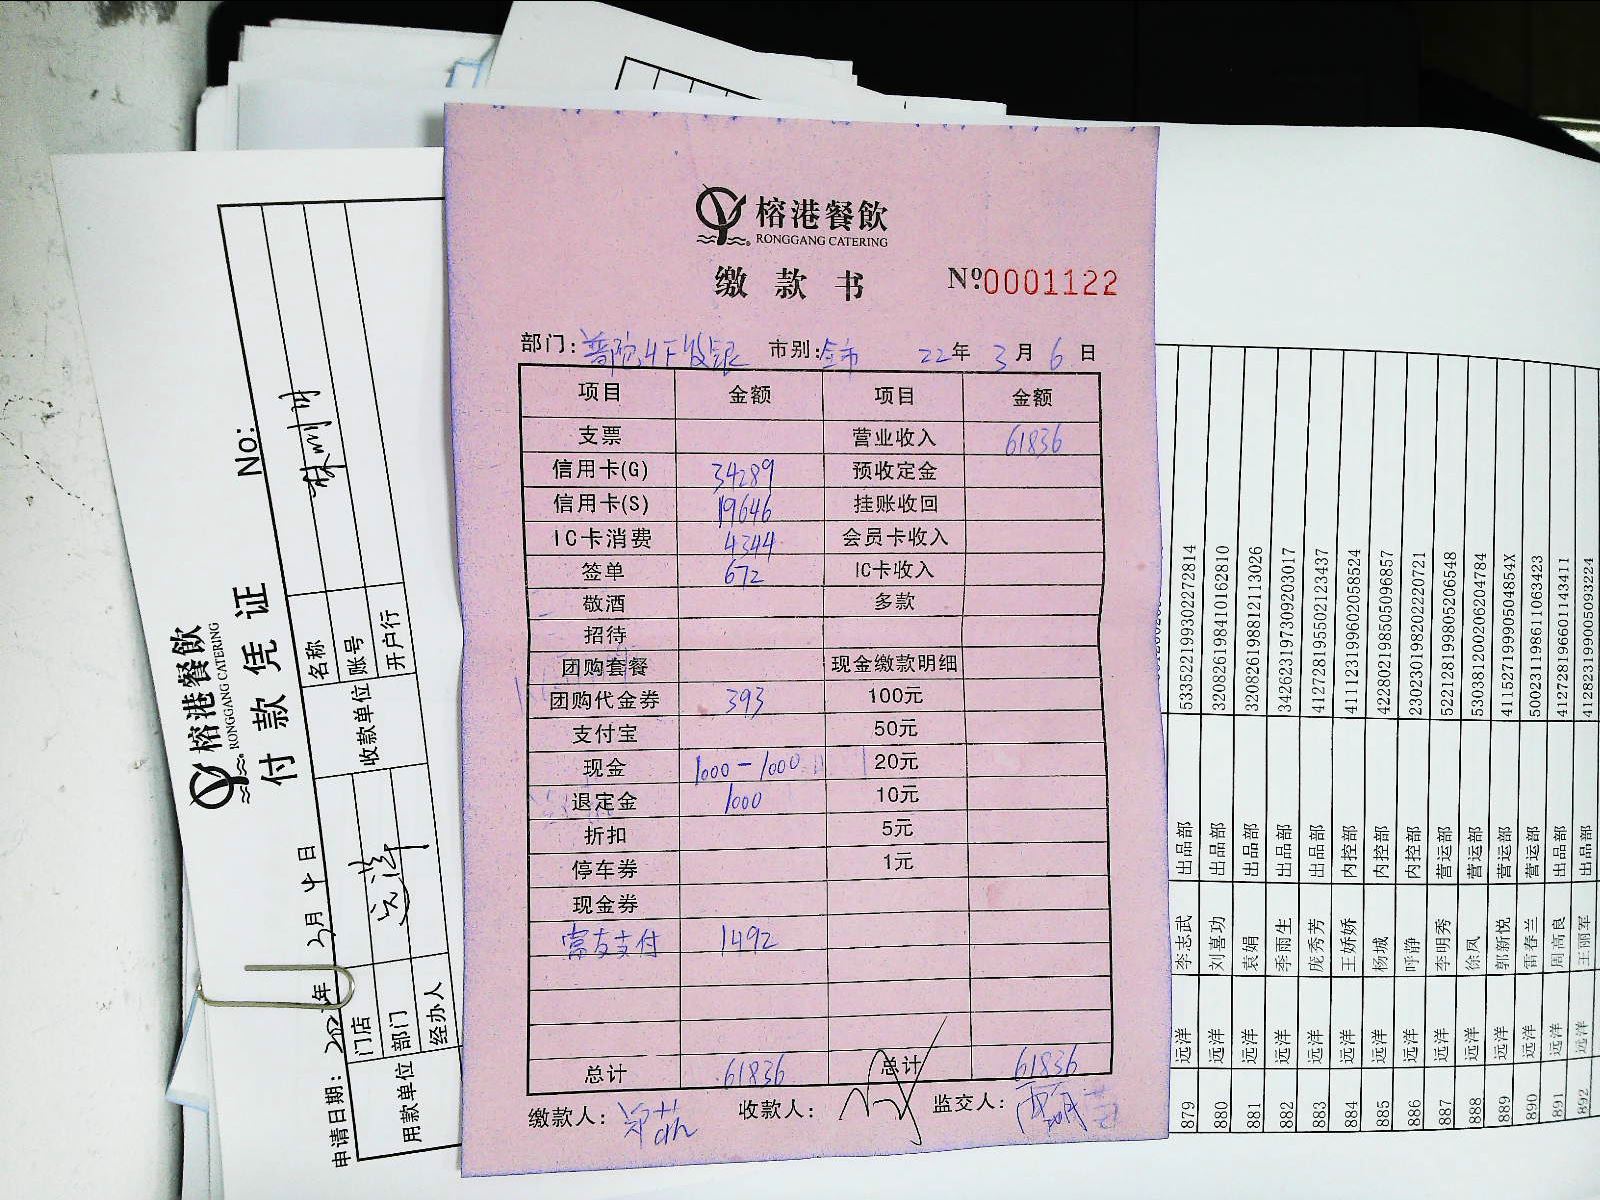 榕港餐飲
RONGGANG CATERING
缴款书 №0001122
部门: 市别: 22年 3月 6日
项目 金额 项目 金额
支票 营业收入 61836
信用卡(G) 34289 预收定金
信用卡(S) 19646 挂账收回
IC卡消费 4344 会员卡收入
签单 672 IC卡收入
敬酒 多款
招待
团购套餐 现金缴款明细
团购代金券 393 100元
支付宝 50元
现金 1000-1000 20元
退定金 1000 10元
折扣 5元
停车券 1元
现金券
富友支付 1492
总计 61836 总计 61836
缴款人: 收款人: 监交人:
榕港餐飲
RONGGANG CATERING
付款凭证 No:
申请日期: 年 3月 日
用款单位 门店 收款单位 名称
部门 账号
经办人 开户行
879 远洋 李志武 出品部 533522199302272814
880 远洋 刘喜功 出品部 320826198410162810
881 远洋 袁娟 出品部 320826198812113026
882 远洋 季雨生 出品部 342623197309203017
883 远洋 庞秀芳 出品部 412728195502123437
884 远洋 王娇娇 内控部 411123199602058524
885 远洋 杨城 内控部 422802198505096857
886 远洋 呼静 内控部 230230198202220721
887 远洋 李明秀 营运部 522128199805206548
888 远洋 徐凤 营运部 530381200206204784
889 远洋 郭新悦 营运部 41152719990504854X
890 远洋 雷春兰 营运部 500231198611063423
891 远洋 周高良 出品部 412728196601143411
892 远洋 王丽军 出品部 412823199005093224